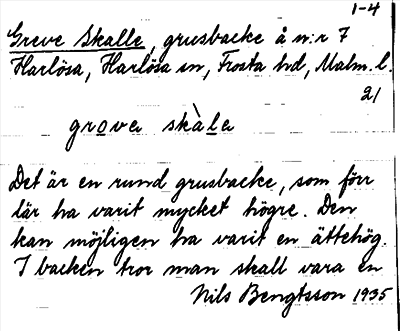 1-4
Greve Skalle, grusbacke å n:r 7
Harlösa, Harlösa sn, Frosta hd, Malm. l.
2/
grove skàla
Det är en rund grusbacke, som förr
lär ha varit mycket högre. Den
kan möjligen ha varit en ättehög.
I backen tror man skall vara en
Nils Bengtsson 1935